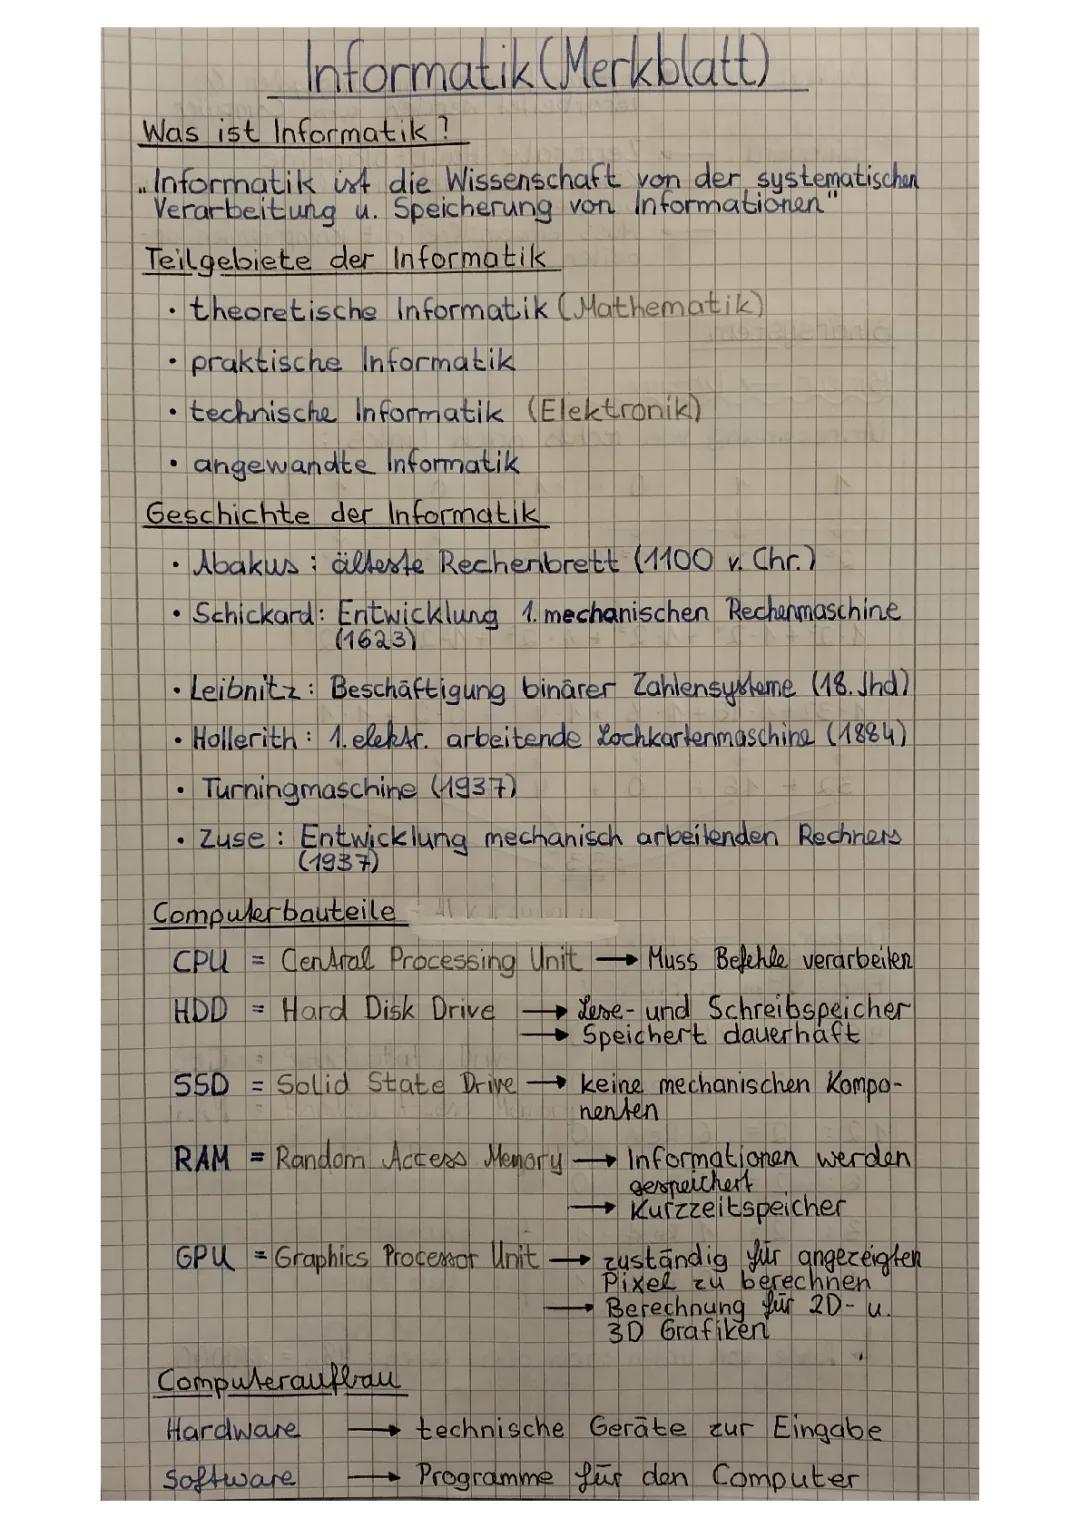 Informatik (Merkblatt)
Was ist Informatik?
„Informatik ist die Wissenschaft von der systematischen
Verarbeitung u. Speicherung von Informationen"
Teilgebiete der Informatik
· theoretische Informatik (Mathematik)
· praktische Informatik
· technische Informatik (Elektronik)
· angewandte Informatik
Geschichte der Informatik
· Abakus: älteste Rechenbrett (1100 v. Chr.)
· Schickard: Entwicklung 1. mechanischen Rechenmaschine
(1623)
· Leibnitz: Beschäftigung binärer Zahlensysteme (18. Jhd)
· Hollerith: 1. elektr. arbeitende Lochkartenmaschine (1884)
· Turningmaschine (1937)
· Zuse: Entwicklung mechanisch arbeitenden Rechners
(1937)
Computerbauteile
CPU = Central Processing Unit → Muss Befehle verarbeiten
HDD = Hard Disk Drive → Lese- und Schreibspeicher
→ Speichert dauerhaft
SSD = Solid State Drive → keine mechanischen Kompo-
nenten
RAM = Random Access Memory → Informationen werden
gespeichert
→ Kurzzeitspeicher
GPU = Graphics Processor Unit → zuständig für angezeigten
Pixel zu berechnen
→ Berechnung für 2D- u.
3D Grafiken
Computeraufbau
Hardware → technische Geräte zur Eingabe
Software → Programme für den Computer